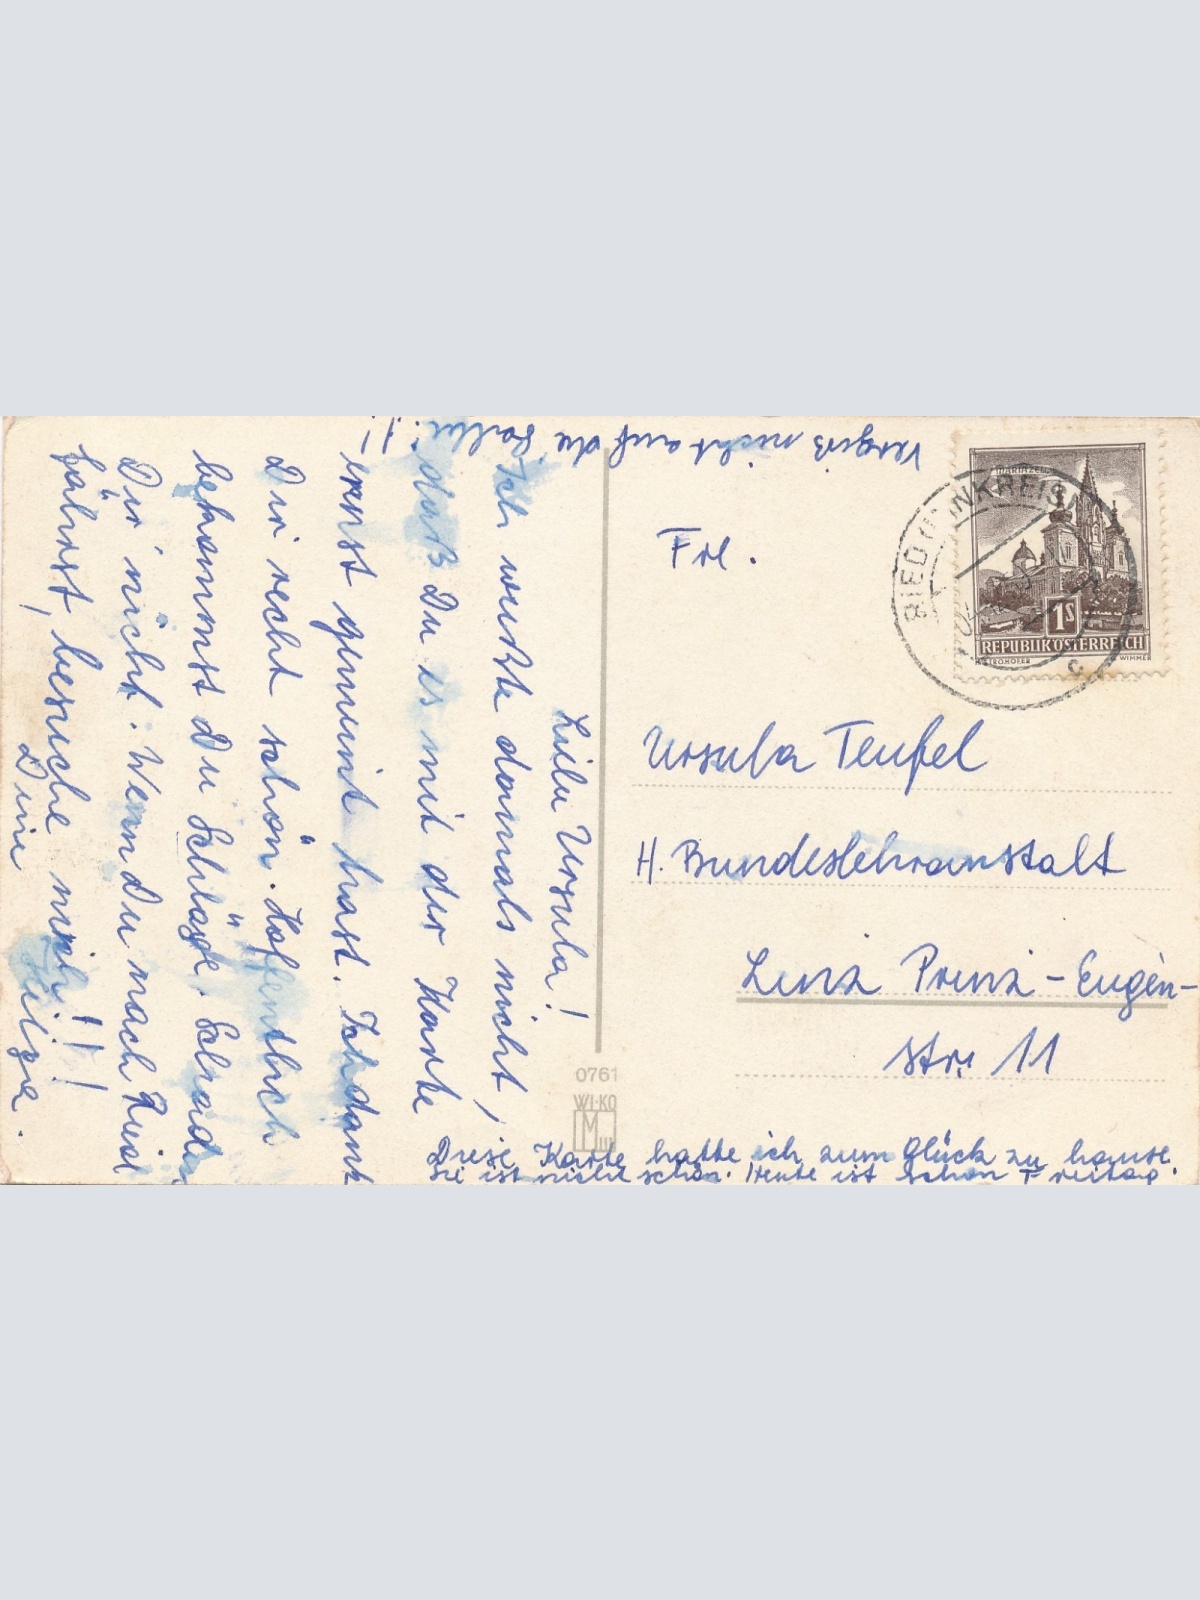 Liebe Ursula!
Ich wuste damals nicht,
daß Du es mit der Karte
ernst gemeint hast. Ich dank
Dir recht schön. Hoffentlich
bekommst Du Schläge. Schaden
Dir nicht. Wenn Du nach Ried
fährst, besuche mich!!!
Deine Helga.
Vergiß nicht auf die !!
MARIAZELL
RIED IM INNKREIS
1S
REPUBLIK ÖSTERREICH
STROHOFER WIMMER
c
Frl.
Ursula Teufel
H. Bundeslehranstalt
Linz Prinz-Eugen-
str. 11
0761
WI-KO
M
Diese Karte hatte ich zum Glück zu hause.
Sie ist nicht schön. Heute ist schon Freitag.